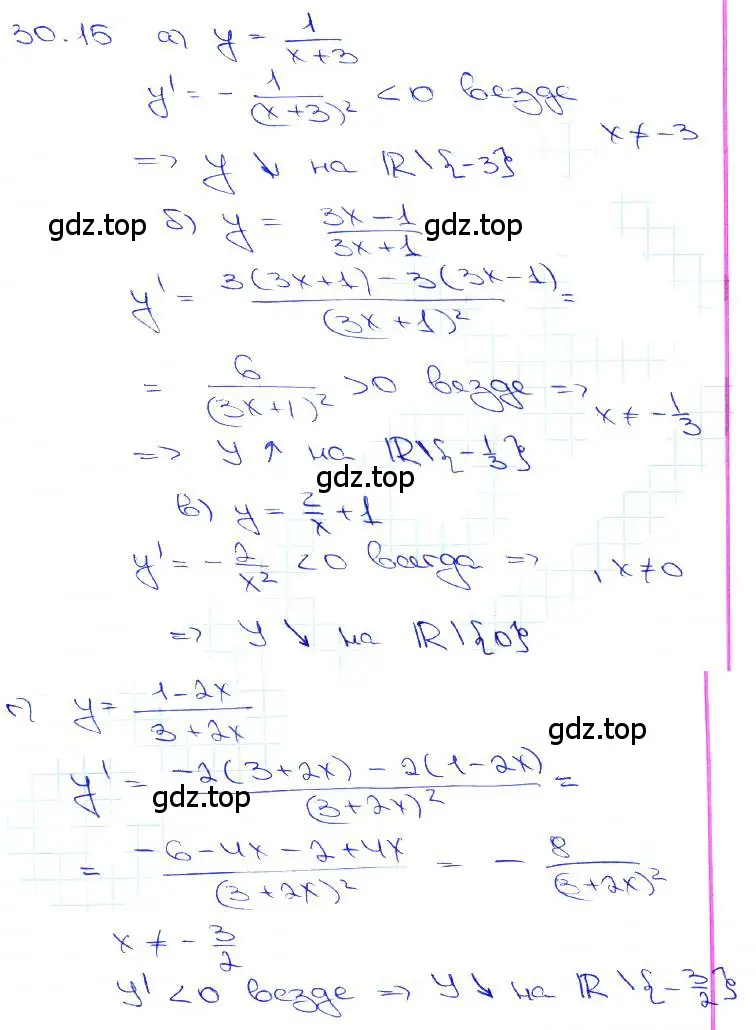 30.15 а) y = 1/(x+3)
y' = - 1/(x+3)² <0 везде
x ≠ -3
=> y ↓ на ℝ\{-3}
gdz.top б) y = (3x-1)/(3x+1) gdz.top
y' = (3(3x+1) - 3(3x-1))/(3x+1)² =
= 6/(3x+1)² >0 везде =>
x ≠ -1/3
=> y ↑ на ℝ\{-1/3}
gdz.top
в) y = 2/x + 1
y' = - 2/x² <0 всегда => , x ≠ 0
=> y ↓ на ℝ\{0}
г) y = (1-2x)/(3+2x)
gdz.top
y' = (-2(3+2x) - 2(1-2x))/(3+2x)² =
gdz.top
= (-6-4x-2+4x)/(3+2x)² = - 8/(3+2x)²
x ≠ - 3/2
y' <0 везде => y ↓ на ℝ\{-3/2}